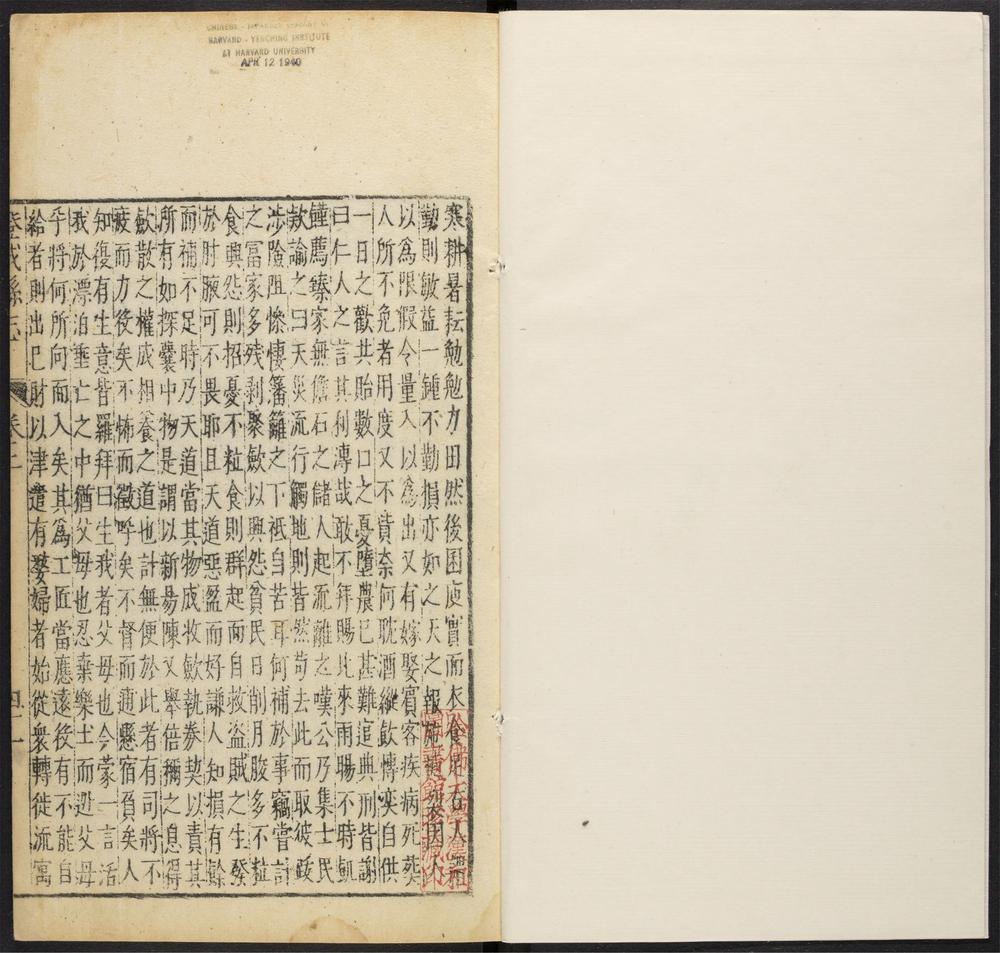 CHINESE - JAPANESE LIBRARY OF
HARVARD - YENCHING INSTITUTE
AT HARVARD UNIVERSITY
APR 12 1940
寒耕暑耘勉勉力田然後囷庾實而衣食足
勤則敏益一鍾不勤損亦如之天之報施
以為限假令量入以為出又有嫁娶賓客疾病死葬
人所不免者用度又不貲奈何耽酒縱飲慱奕自供
一日之歡其貽數口之憂墮農已甚難逭典刑皆謝
曰仁人之言其利溥哉敢不拜賜比來雨賜不時飢
饉薦臻家無儋石之儲人起流離之嘆公乃集士民
款論之曰天災流行觸地則皆然苟去此而取彼跋
涉險阻慘悽籓籬之下祗自苦耳何補於事竊嘗計
之富家多殘剥聚歛以興怨貧民日削月朘多不粒
食興怨則招憂不粒食則群起而自救盜賊之生發
於肘腋可不畏耶且天道惡盈而好謙人知損有餘
而補不足時乃天道當其物成收歛執券契以責其
所有如探囊中物是謂以新易陳又舉倍稱之息得
歛散之權成相養之道也計無便於此者有司將不
疲而力後矣不怖而徵呼矣不督而逋懸宿負矣人
知復有生意皆羅拜曰生我者父母也今蒙一言活
我於漂泊垂亡之中猶父母也忍棄樂土而逃父母
乎將何所向而入矣其為工匠當應遠後有不能自
給者則出己財以津遣有嫠婦者始從衆轉徙流寓
卷二